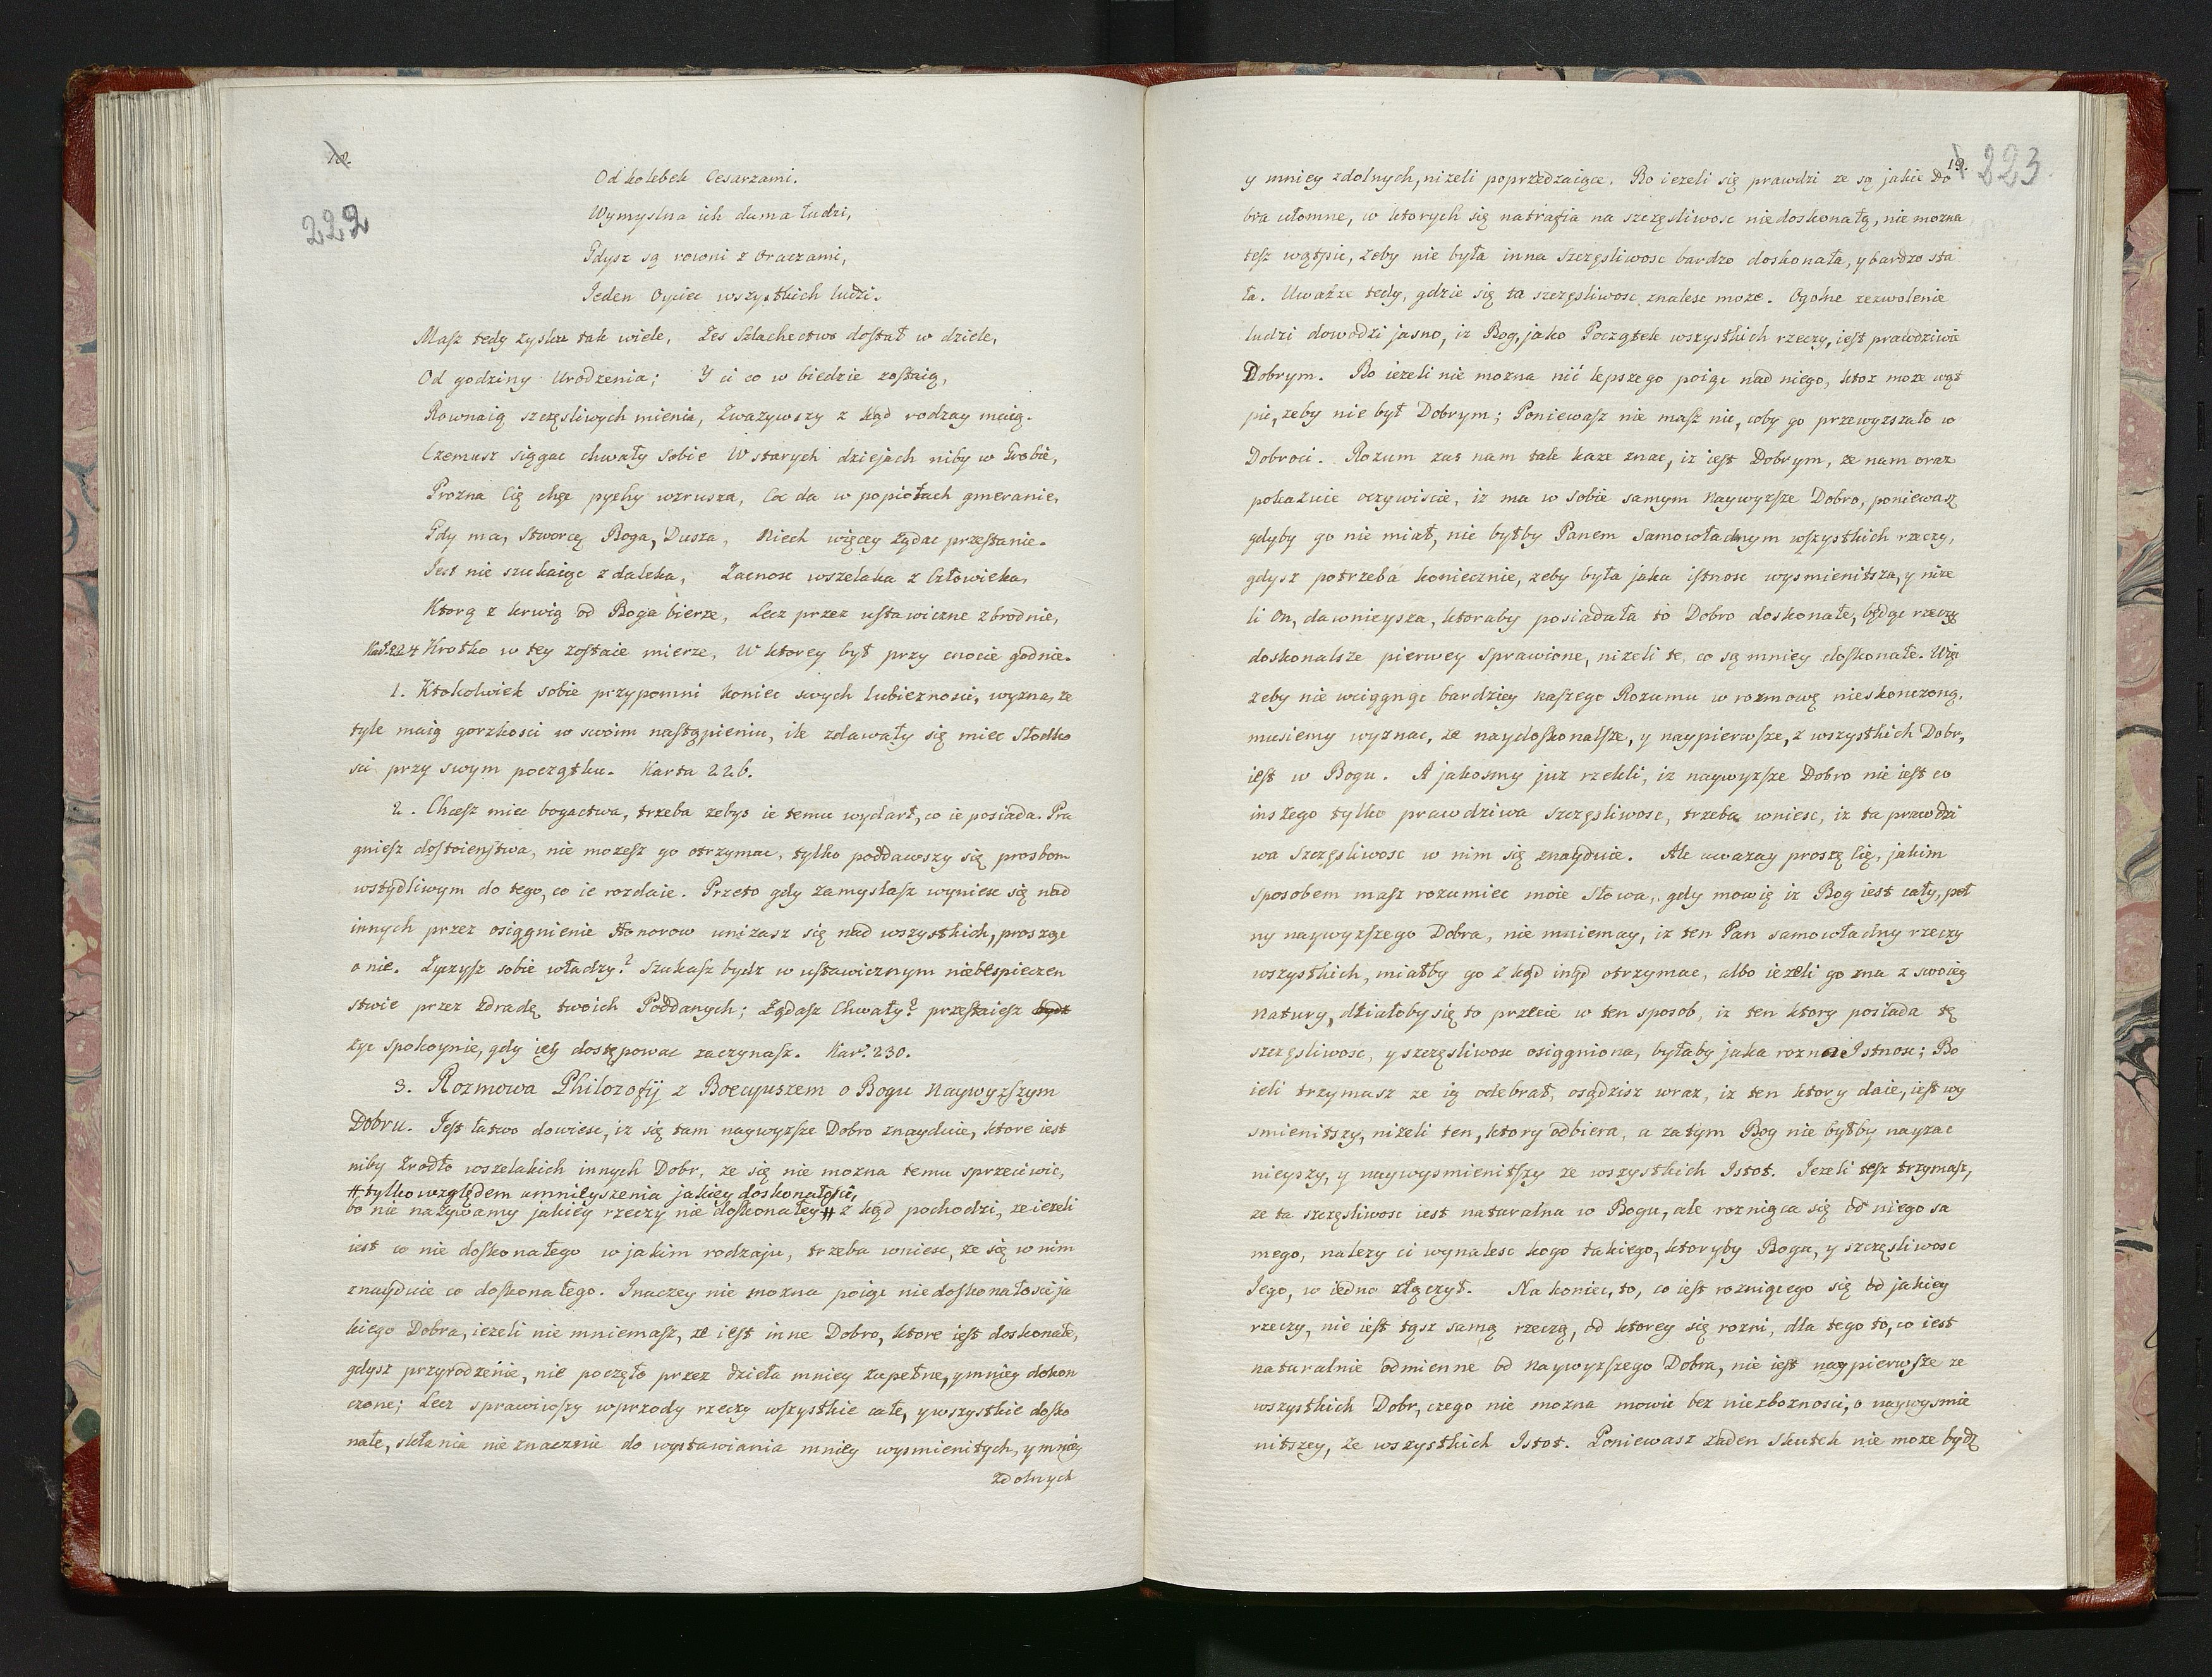 18.
222
Od kolebek Cesarzami.
Wymyslna ich duma łudzi,
Gdysz są rowni z Oraczami,
Jeden Oyciec wszystkich ludzi.
Masz tedy zysku tak wiele, Zes Szlachectwo dostał w dziele,
Od godziny Urodzenia; Y ci co w biedzie zostaią,
Rownaią szczęsliwych mienia, Zwazywszy z kąd rodzay maią.
Czemusz siągac chwały sobie W starych dziejach niby w Grobie,
Prozna Cię chęc pychy wzrusza, Coc da w popiołach gmeranie,
Gdy ma, Stworcę Boga, Dusza, Niech więcey żądac przestanie.
Jest nie szukaiąc z daleka, Zacnosc wszelaka z Człowieka,
Ktorą z krwią od Boga bierze, Lecz przez ustawiczne zbrodnie,
Kar: 224 Krotko w tey zostaie mierze, W ktorey był przy cnocie godnie.
1. Ktokolwiek sobie przypomni koniec swych lubieznosci, wyzna, ze
tyle maią gorzkosci w swoim nastąpieniu, ile zdawały się miec słodko
sci przy swym początku. Karta 226.
2. Chcesz miec bogactwa, trzeba zebys ie temu wydarł, co ie posiada. Pra
gniesz dostoienstwa, nie mozesz go otrzymac, tylko poddawszy się prosbom
wstydliwym do tego, co ie rozdaie. Przeto gdy zamyslasz wyniesc się nad
innych przez osiągnienie Honorow unizasz się nad wszystkich, prosząc
o nie. Zyczysz sobie władzy? szukasz bydz w ustawicznym niebespieczen
stwie przez zdradę twoich Poddanych; Ządasz Chwały? przestaiesz bydz
zyc spokoynie, gdy iey dostępowac zaczynasz. Kar: 230.
3. Rozmowa Philozofij z Boecyuszem o Bogu Naywyzszym
Dobru. Jest łatwo dowiesc, iz się tam naywyzsze Dobro znayduie, ktore iest
niby zrodło wszelakich innych Dobr, ze się nie mozna temu sprzeciwic,
# tylko względem umnieyszenia jakiey doskonałosci,
bo nie nazywamy jakiey rzeczy nie doskonałey # z kąd pochodzi, ze iezeli
iest co nie doskonałego w jakim rodzaju, trzeba wniesc, ze się w nim
znayduie co doskonałego. Inaczey nie mozna poiąc niedoskonałosci ja
kiego Dobra, iezeli nie mniemasz, ze iest inne Dobro, ktore iest doskonałe,
gdysz przyrodzenie, nie poczęło przez dzieła mniey zupełne, y mniey dokon
czone; Lecz sprawiwszy wprzody rzeczy wszystkie całe, y wszystkie dosko
nałe, skłania nieznacznie do wystawiania mniey wysmienitych, y mniey
zdolnych
19.
223
y mniey zdolnych, nizeli poprzedzaiące. Bo iezeli się prawdzi ze są jakie Do
bra ułomne, w ktorych się natrafia na szczęsliwosc niedoskonałą, nie mozna
tesz wątpic, zeby nie była inna szczęsliwosc bardzo doskonała, y bardzo sta
ła. Uwazze tedy, gdzie się ta szczęsliwosc znalesc moze. Ogolne zezwolenie
ludzi dowodzi jasno, iz Bog, jako Początek wszystkich rzeczy, iest prawdziwie
Dobrym. Bo iezeli nie mozna nic lepszego poiąc nad niego, ktoz moze wąt
pic, zeby nie był Dobrym; Poniewasz nie masz nic, coby go przewyzszało w
Dobroci. Rozum zas nam tak kaze znac, iz iest Dobrym, ze nam oraz
pokazuie oczywiscie, iz ma w sobie samym Naywyzsze Dobro, poniewasz
gdyby go nie miał, nie byłby Panem samowładnym wszystkich rzeczy,
gdysz potrzeba koniecznie, zeby była jaka istnosc wysmienitsza, y nize
li On, dawnieysza, ktoraby posiadała to Dobro doskonałe, będąc rzeczy
doskonalsze pierwey sprawione, nizeli te, co są mniey doskonałe. Więc
zeby nie wciągnąc bardziey naszego Rozumu w rozmowę nieskonczoną,
musiemy wyznac, ze naydoskonalsze, y naypierwsze, z wszystkich Dobr,
iest w Bogu. A jakosmy juz rzekli, iz naywyzsze Dobro nie iest co
inszego tylko prawdziwa szczęsliwosc, trzeba wniesc, iz ta prawdzi
wa szczęsliwosc w nim się znayduie. Ale uwazay proszę Cię, jakim
sposobem masz rozumiec moie Słowa, gdy mowię iz Bog iest cały, peł
ny naywyzszego Dobra, nie mniemay, iz ten Pan samowładny rzeczy
wszystkich, miałby go z kąd inąd otrzymac, albo iezeli go zna z swoiey
Natury, działoby się to przecie w ten sposob, iz ten ktory posiada tę
szczęsliwosc, y szczęsliwosc osiągniona, byłaby jaka rozna Istnosc; Bo
ieli trzymasz ze ią odebrał, osądzisz wraz, iz ten ktory daie, iest wy
smienitszy, nizeli ten, ktory odbiera, a zatym Bog nie byłby nayzac
nieyszy, y naywysmienitszy ze wszystkich Istot. Jezeli tesz trzymasz,
ze ta szczęsliwosc iest naturalna w Bogu, ale roznięca się od niego sa
mego, nalezy ci wynalesc kogo takiego, ktoryby Boga, y szczęsliwosc
Jego, w iedno złączył. Na koniec, to, co iest rozniącego się od jakiey
rzeczy, nie iest tąsz samą rzeczą, od ktorey się rozni, dla tego to, co iest
naturalnie odmienne od Naywyzszego Dobra, nie iest naypierwsze ze
wszystkich Dobr, czego nie mozna mowic bez niezboznosci, o naywysmie
nitszey, ze wszystkich Istot. Poniewasz zaden skutek nie moze bydz